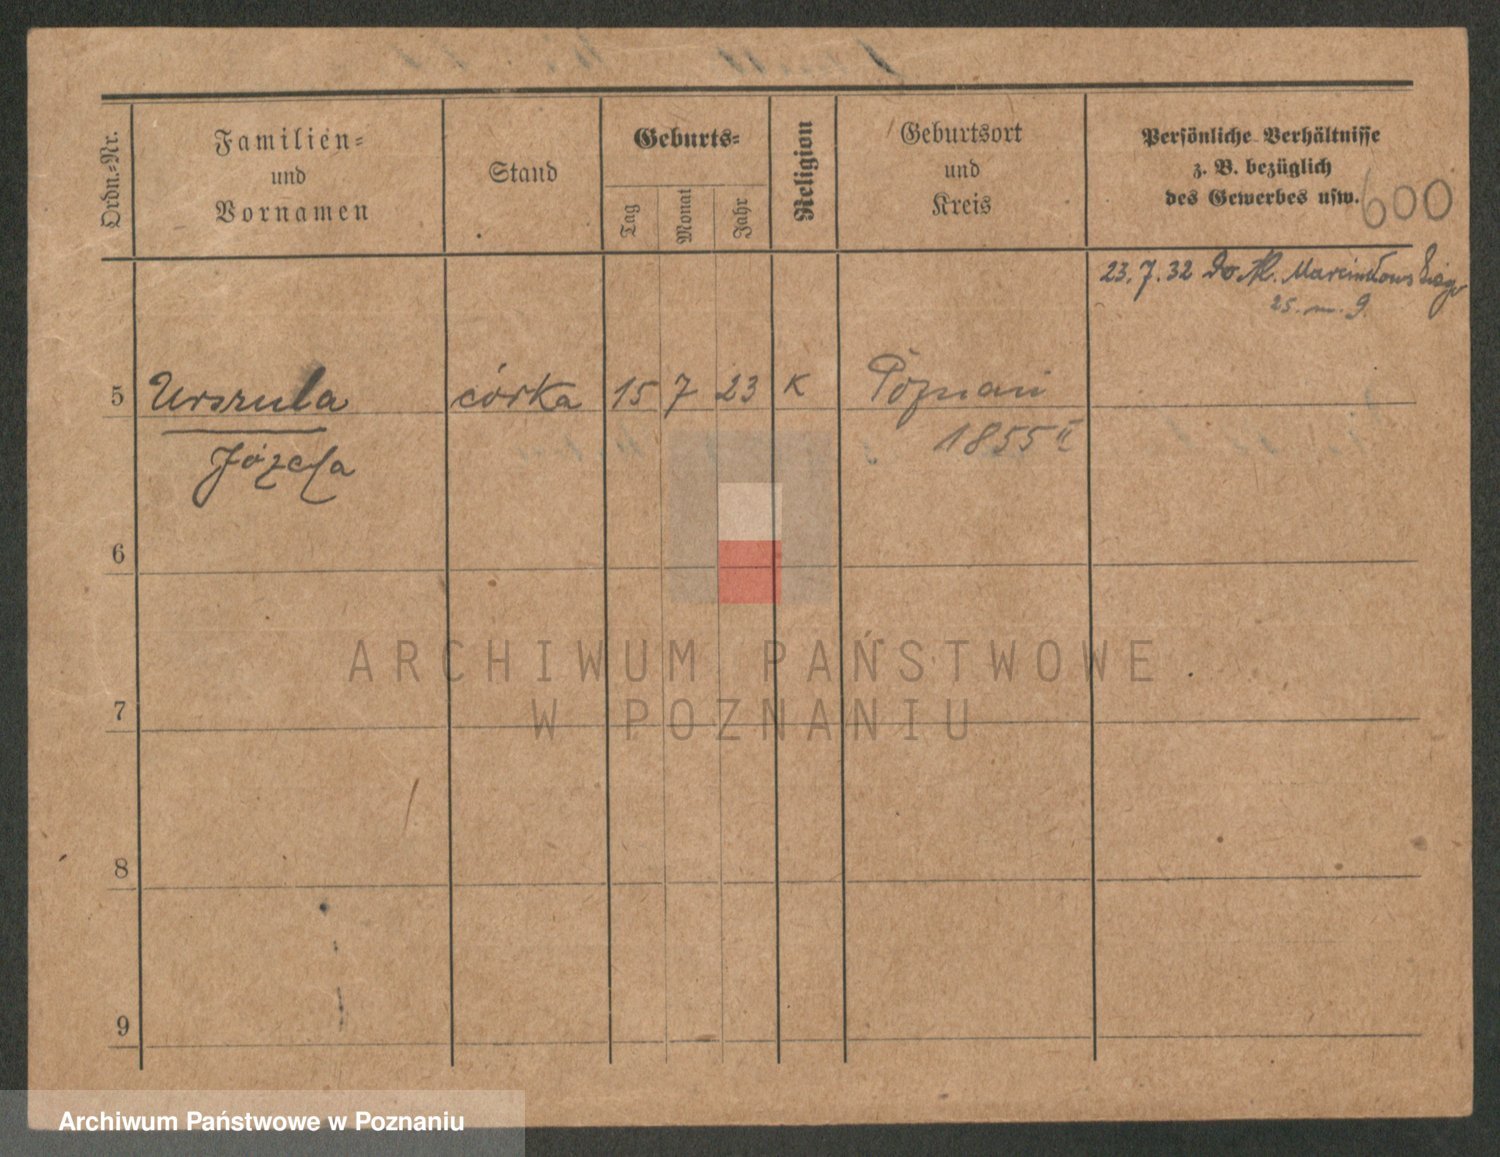 Ordn.-Nr.
Familien-
und
Vornamen
Stand
Geburts-
Tag
Monat
Jahr
Religion
Geburtsort
und
Kreis
Persönliche Verhältnisse
z. B. bezüglich
des Gewerbes usw.
600
23.7.32 Do Al. Marcinkowskiego
25. m. 9
5 Urszula córka 15 7 23 K Poznań
Józefa 1855 II
6
7
8
9
ARCHIWUM PAŃSTWOWE
W POZNANIU
Archiwum Państwowe w Poznaniu